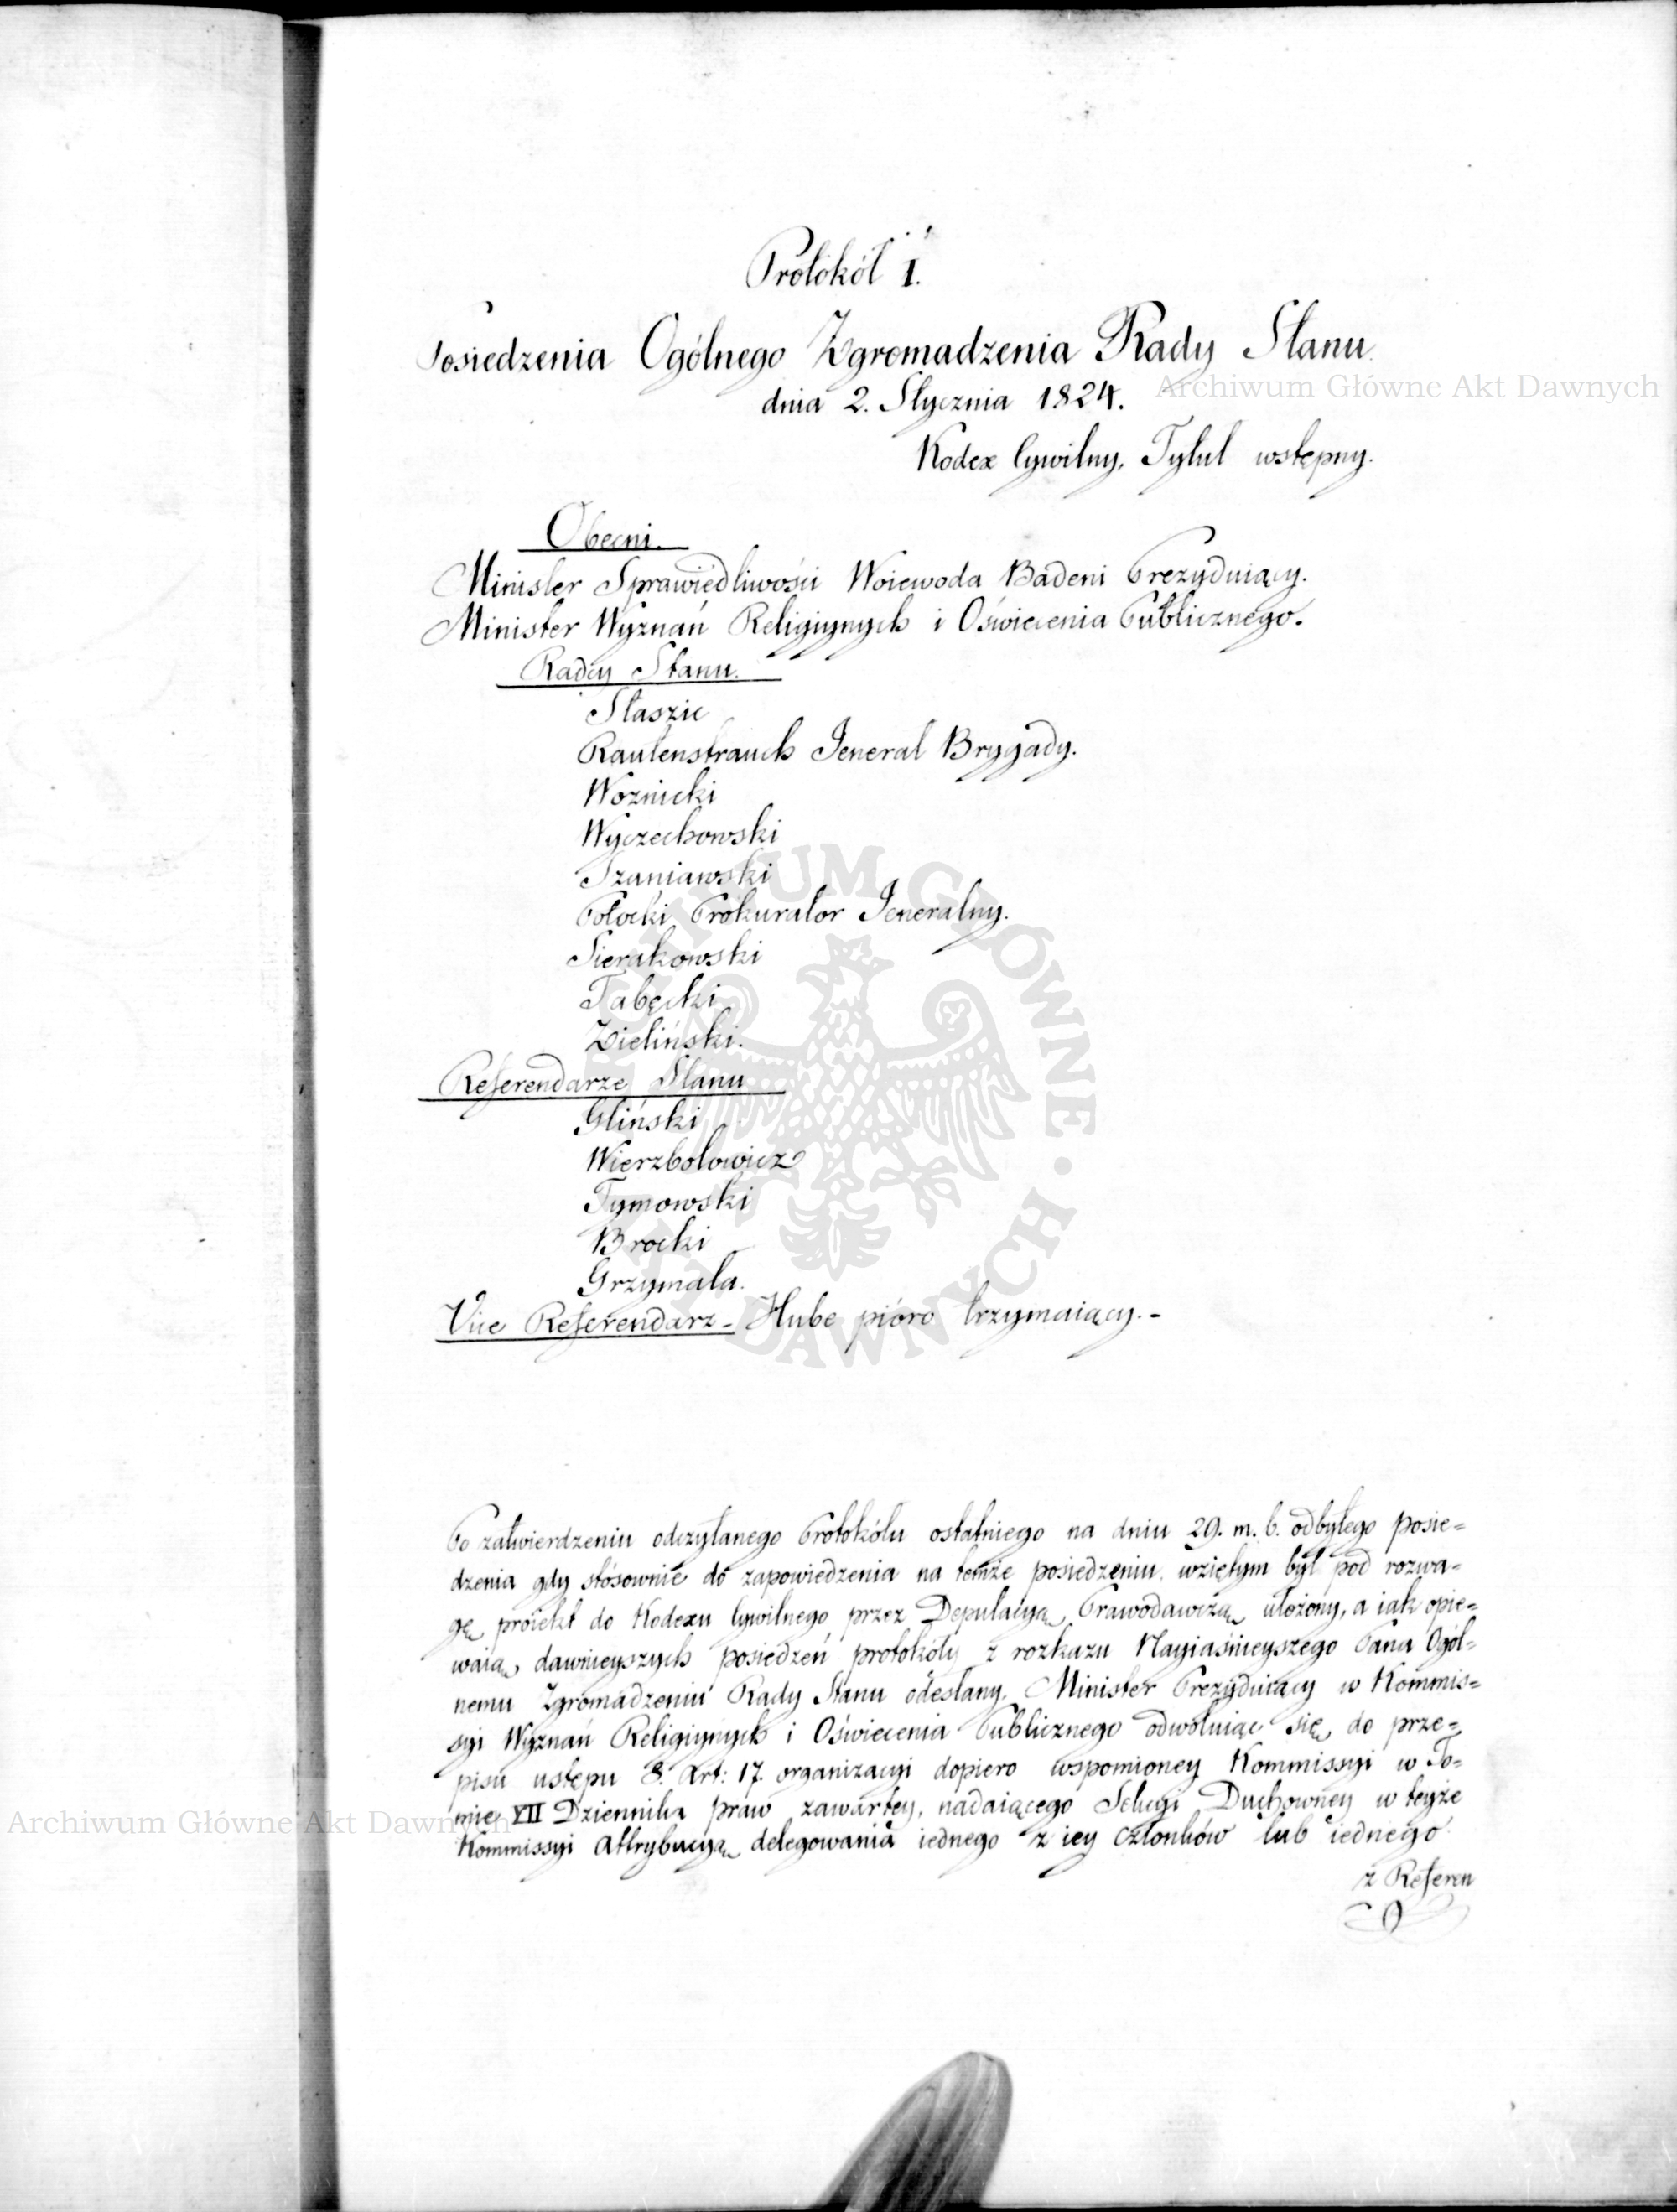 Protokół 1.
Posiedzenia Ogólnego Zgromadzenia Rady Stanu
dnia 2. Stycznia 1824.
Archiwum Główne Akt Dawnych
Kodex Cywilny, Tytuł wstępny.
Obecni.
Minister Sprawiedliwości Woiewoda Badeni Prezyduiący.
Minister Wyznań Religiynych i Oświecenia Publicznego.
Radcy Stanu.
Staszic
Rautenstrauch Jenerał Brygady.
Woznicki
Wyczechowski
Szaniawski
Potocki Prokurator Jeneralny.
Sierakowski
Tabęcki
Zieliński.
Referendarze Stanu
Gliński
Wierzbołowicz
Tymowski
Brocki
Grzymała.
Vice Referendarz - Hube pióro trzymaiący. -
ARCHIWUM GŁÓWNE · AKT DAWNYCH ·
Po zatwierdzeniu odczytanego Protokółu ostatniego na dniu 29. m. b. odbytego posie=
dzenia gdy stósownie do zapowiedzenia na temże posiedzeniu, wziętym był pod rozwa=
gę proiekt do Kodexu Cywilnego przez Deputacyą Prawodawczą ułożony, a iak opie=
waią dawnieyszych posiedzeń protokóły z rozkazu Nayiaśnieyszego Pana Ogól=
nemu Zgromadzeniu Rady Stanu odesłany, Minister Prezyduiący w Kommis=
syi Wyznań Religiynych i Oświecenia Publicznego odwołuiąc się do prze=
pisu ustępu 8. Art: 17. organizacyi dopiero wspomioney Kommissyi w To=
mie VII Dziennika praw zawartey, nadaiącego Sekcyi Duchowney w teyże
Archiwum Główne Akt Dawnych
Kommissyi attrybucyą delegowania iednego z iey członków lub iednego
z Referen